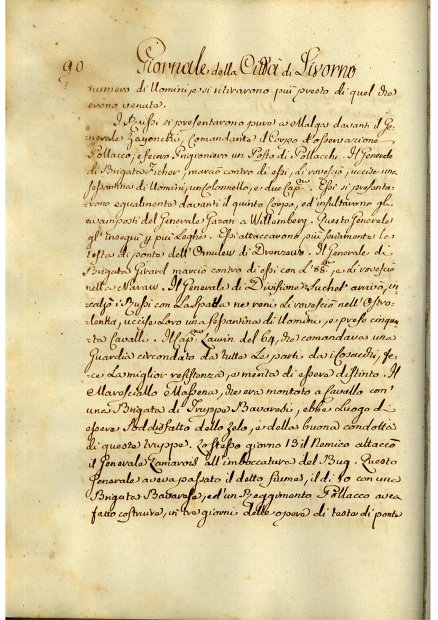 90 Giornale della Città di Livorno
numero di Uomini, e si ritirarono più presto di quel che
erono venuti.
I Russi si presentarono pure a Malga davanti il Ge-
nerale Zayonchek, Comandante il Corpo d'osservazione
Pollacco, e fecero Prigioniero un Posto di Pollacchi. Il Generale
di Brigata Ficher marciò contro di essi, li rovesciò, uccise una
sessantina di Uomini, un Colonnello, e due Cap.ni Essi si presenta-
rono egualmente davanti il quinto Corpo, ed insultarono gli
avamposti del Generale Gazan a Willemberg. Questo Generale
gl'inseguì per più Leghe. Essi attaccarono più fortemente la
testa di ponte dell'Omulew di Drenzewo. Il Generale di
Brigata Girard marciò contro di essi con l'88.mo, e li rovesciò
nella Naraw. Il Generale di Divisione Suchet arrivò, in-
calzò i Russi con la Spada ne' reni li rovesciò nell'Ostro-
lenka, uccise loro una sessantina di Uomini, e prese cinquan-
ta Cavalli. Il Cap.no Laurin del 64, che comandava una
Guardia circondato da tutte le parti da i Cosacchi, fe-
ce la miglior resistenza, e merita di essere distinto. Il
Maresciallo Massena, che era montato a Cavallo con
una Brigata di Truppe Bavaresi, ebbe luogo di
essere soddisfatto dello zelo, e della buona condotta
di queste truppe. Lo stesso giorno 13 il Nemico attaccò
il Generale Lamarois all'imboccatura del Bug. Questo
Generale aveva passato il detto fiume, il dì 10 con una
Brigata Bavarese, ed un Reggimento Pollacco avea
fatto costruire, in tre giorni delle opere di testa di ponte